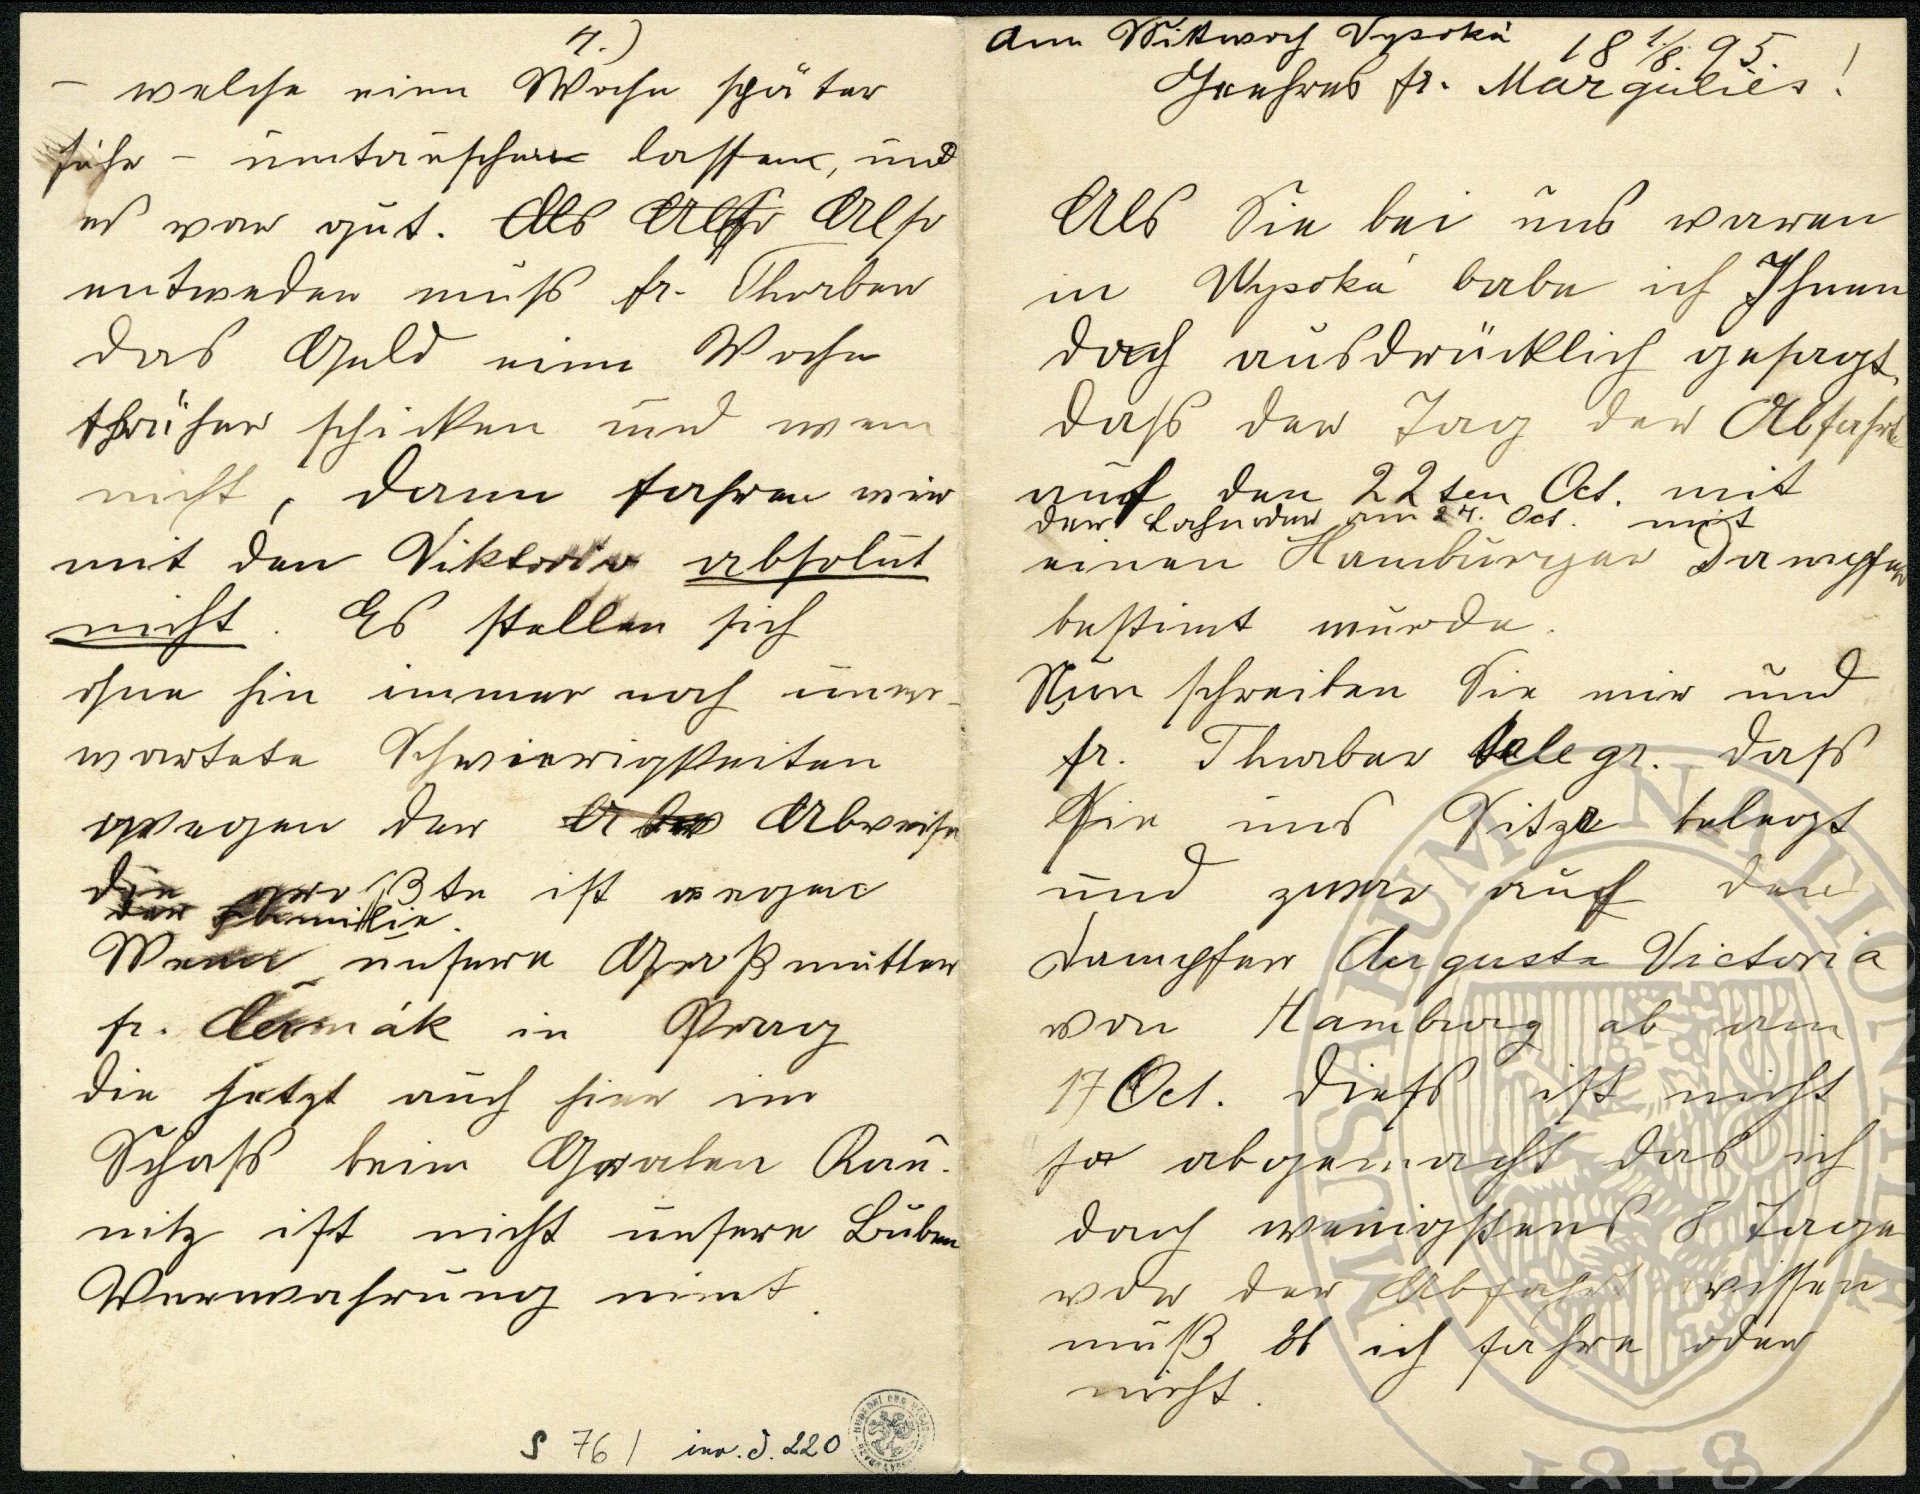 Am Mittwoch Vysoká
18 1/8. 95.
Geehres fr. Margulies!
Als Sie bei uns waren
in Wysoka habe ich Ihnen
doch ausdrücklich gesagt,
daß der Tag der Abfahrt
auf den 22ten Oct. mit
der oder am 24. Oct. mit
einen Hamburger Dampfer
bestimt wurde.
Nun schreiben Sie mir und
fr. Thurber telegr. daß
Sie uns Sitze belegt
und zwar auf den
Dampfer Augusta Victoria
von Hamburg ab am
17 Oct. Dieß ist nicht
so abgemacht das ich
doch wenigstens 8 Tage
vor der Abfahrt wissen
muß ob ich fahre oder
nicht.
4.)
– welche eine Woche später
fuhr – umtauschen lassen, und
es war gut. Als Also Also
entweder muß fr. Thurber
das Geld eine Woche
früher schicken und wen
nicht, dann fahren wir
mit den Viktoria absolut
nicht. Es stellen sich
ohne hin immer noch uner-
wartete Schwierigkeiten
wegen der Abreise
die größte ist wegen
der Familie.
Wenn unsere Großmutter
fr. Čermák in Prag
die jetzt auch hier im
Schoß beim Grafen Kau-
nitz ist nicht unsere Buben
Verwahrung nimt.
S 76 / inv. č. 220
MUSAEUM NATIONALE
1818